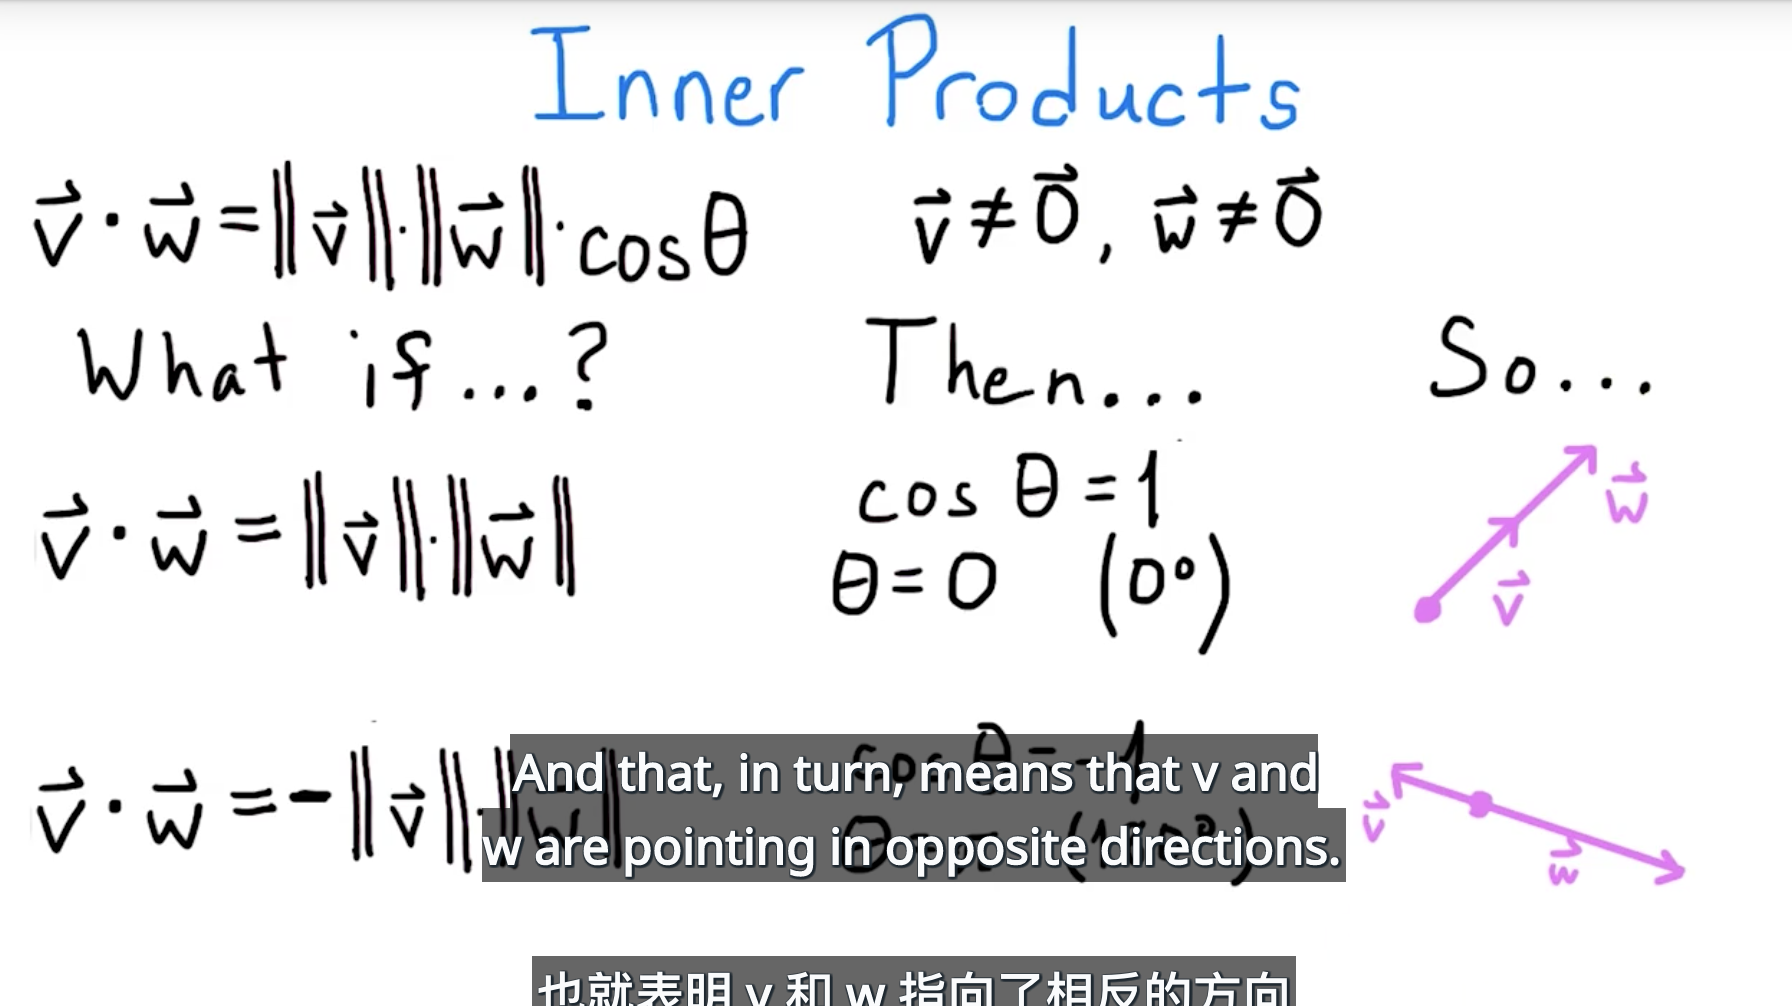 Inner Products
v⃗ · w⃗ = ‖v⃗‖·‖w⃗‖·cos θ v⃗ ≠ 0⃗, w⃗ ≠ 0⃗
What if...? Then... So...
cos θ = 1
w⃗
v⃗ · w⃗ = ‖v⃗‖·‖w⃗‖
θ = 0 (0°)
v⃗
cos θ = -1
And that, in turn, means that v and
v⃗ · w⃗ = -‖v⃗‖·‖w⃗‖
v⃗
w are pointing in opposite directions.
w⃗
也就表明 v 和 w 指向了相反的方向